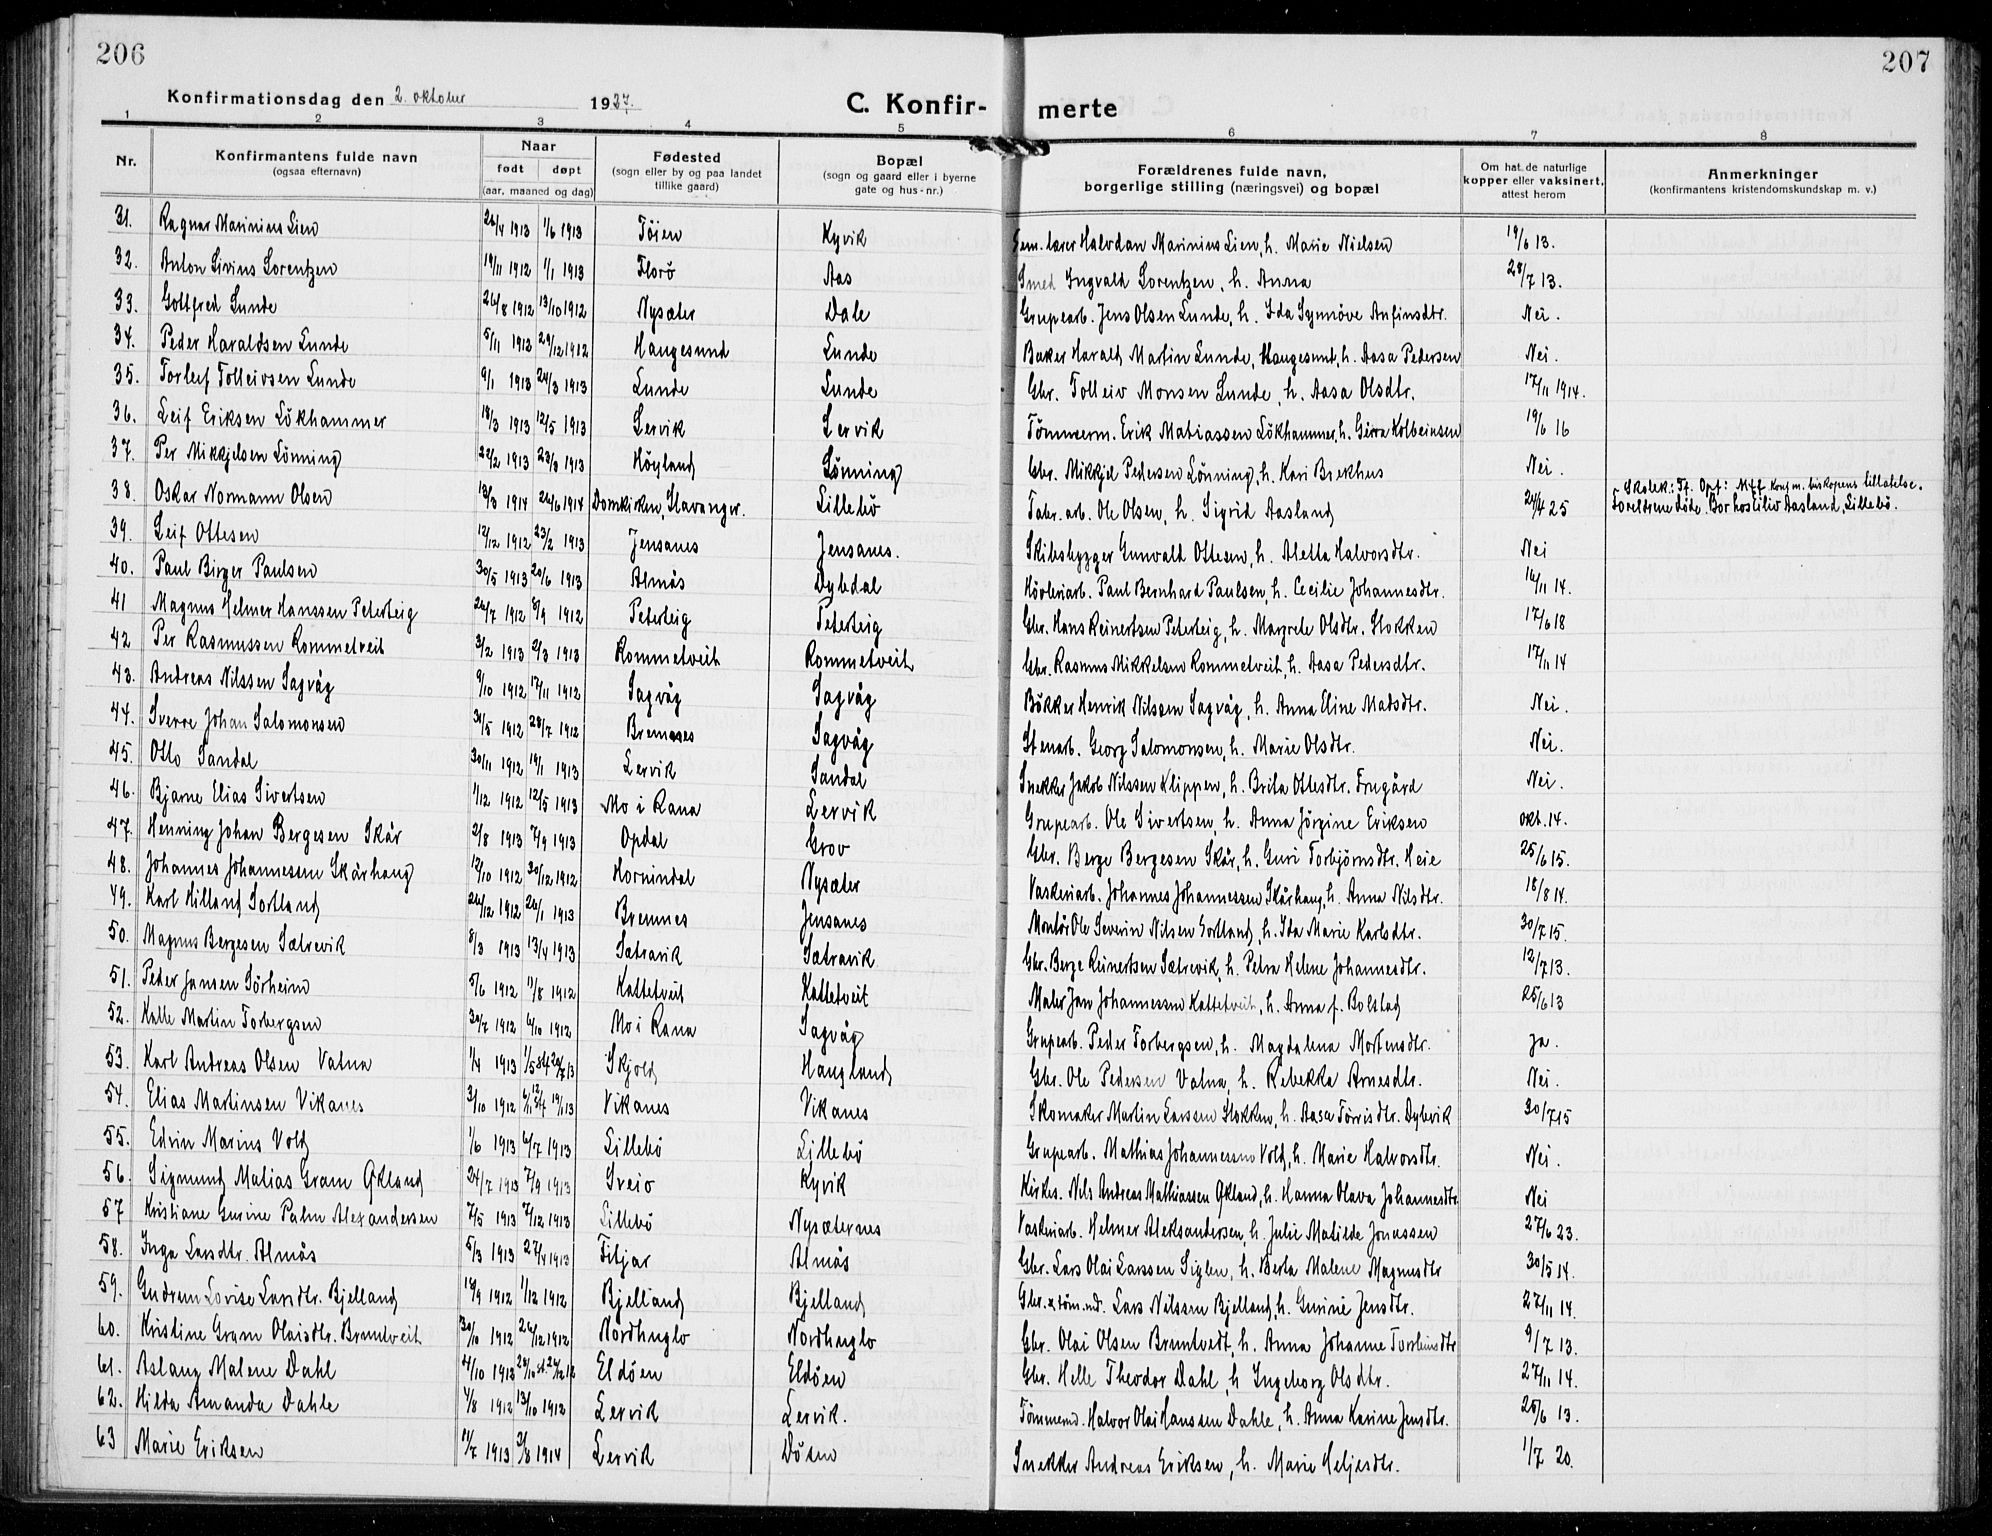 206
207
Konfirmationsdag den 2. oktober 1927.
C. Konfir- merte
1 2 3 4 5 6 7 8
Nr.
Konfirmantens fulde navn
(ogsaa efternavn)
Naar
født døpt
(aar, maaned og dag)
Fødested
(sogn eller by og paa landet
tillike gaard)
Bopæl
(sogn og gaard eller i byerne
gate og hus-nr.)
Forældrenes fulde navn,
borgerlige stilling (næringsvei) og bopæl
Om hat de naturlige
kopper eller vaksinert,
attest herom
Anmerkninger
(konfirmantens kristendomskundskap m. v.)
31. Ragnar Marinius Lien 26/4 1913 1/6 1913 Töien Kyvik Sem. lærer Halvdan Marinius Lien, h. Marie Nielsen 19/6 13.
32. Anton Sivius Lorentzen 19/11 1912 1/1 1913 Florö Aas Smed Ingvald Lorentzen, h. Anna 28/7 13.
33. Gottfred Lunde 26/8 1912 13/10 1912 Nysæter Dale Grupearb. Jens Olsen Lunde, h. Ida Synnöve Anfinsdtr. Nei.
34. Peder Haraldsen Lunde 5/11 1912 29/12 1912 Haugesund Lunde Baker Harald Martin Lunde, Haugesund, h. Aasa Pedersen Nei.
35. Torleif Tolleivsen Lunde 9/1 1913 24/3 1913 Lunde Lunde Gbr. Tolleiv Monsen Lunde, h. Aasa Olsdtr. 17/11 1914.
36. Leif Eriksen Lökhammer 18/3 1913 12/5 1913 Lervik Lervik Tömmerm. Erik Matiassen Lökhammer, h. Gjerra Kolbeinsen 19/6 16
37. Per Mikkjelsen Lönning 22/2 1913 23/3 1913 Höyland Lönning Gbr. Mikkjel Pedersen Lönning, h. Kari Brekhus Nei.
38. Oskar Normann Olsen 13/3 1914 26/6 1914 Domkirken, Stavanger. Lillebö Fabr. arb. Ole Olsen, h. Sigrid Aasland 24/4 25 Skolek: Tf. Opf: Mtf Konf m. biskopens tillatelse.
Foreldrene döde. Bor hos Eiliv Aasland, Lillebö.
39. Leif Ottesen 12/12 1912 23/2 1913 Jensanes Jensanes. Skibsbygger Gunvald Ottesen, h. Aletta Halvorsdtr. Nei
40. Paul Birger Paulsen 30/5 1913 20/6 1913 Almås Dybdal Paul Bernhard Paulsen, h. Cecilie Johannesdtr. 16/11 14.
41 Magnus Helmer Hanssen Peterteig 24/7 1912 8/9 1912 Peterteig Peterteig Gbr. Hans Reinertsen Peterteig, h. Margrete Olsdtr. Stokken 17/6 18
42 Per Rasmussen Rommetveit 3/2 1913 2/3 1913 Rommetveit Rommetveit Gbr. Rasmus Mikkelsen Rommetveit, h. Aasa Pedersdtr. 17/11 14
43. Andreas Nilssen Sagvåg 9/10 1912 17/11 1912 Sagvåg Sagvåg Bökker Henrik Nilssen Sagvåg, h. Anna Eline Matsdtr. Nei.
44. Sverre Johan Salomonsen 31/5 1912 28/7 1912 Bremnes Sagvåg Stenarb. Georg Salomonsen, h. Marie Olsdtr. Nei.
45. Otto Sandal 30/11 1912 19/1 1913 Lervik Sandal Snekker Jakob Nilssen Klippen, h. Brita Ottesdtr. Frugård Nei.
46. Bjarne Elias Sivertsen 1/12 1912 12/5 1913 Mo i Rana Lervik Grupearb. Ole Sivertsen, h. Anna Jörgine Eriksen okt. 14.
47. Henning Johan Bergesen Skår 2/8 1913 7/9 1913 Opdal Grov Gbr. Berge Bergesen Skår, h. Guri Torbjörnsdtr. Heie 25/6 15.
48. Johannes Johannessen Skårhaug 12/10 1912 30/12 1912 Hornindal Nysæter Vaskeriarb. Johannes Johannessen Skårhaug, h. Anna Nilsdtr. 18/8 14.
49. Karl Hilland Sortland 26/12 1912 26/1 1913 Bremnes Jensanes Montör Ole Severin Nilsen Sortland, h. Ida Marie Karlsdtr. 30/7 15.
50. Magnus Bergesen Sætrevik 8/3 1913 13/4 1913 Sætravik Sætravik Gbr. Berge Reinertsen Sætrevik, h. Petra Helene Johannesdtr. 12/7 13.
51. Peder Jansen Sörheim 5/6 1912 11/8 1912 Kattetveit Kattetveit Maler Jan Johannessen Kattetveit, h. Anna f. Bolstad 25/6 13
52. Kalle Martin Torbergsen 30/7 1912 6/10 1912 Mo i Rana Sagvåg Grupearb. Peder Torbergsen, h. Magdalena Mortensdtr. Ja.
53. Karl Andreas Olsen Vatna 1/4 1913 1/5 st 20/7 13 Skjold Haugland Gbr. Ole Pedersen Vatna, h. Rebekka Arnesdtr. Nei.
54. Elias Martinsen Vikanes 3/10 1912 Vikanes Vikanes Skomaker Martin Larssen Stokken, h. Aasa Torrisdtr. Dybvik 30/7 15
55. Edvin Marius Vold 1/6 1913 6/7 1913 Lillebö Lillebö Grupearb. Mathias Johannessen Vold, h. Marie Halvorsdtr. Nei.
56. Sigmund Matias Gram Økland 24/7 1913 7/9 1913 Sveio Kyvik Kirkes. Nils Andreas Mathiassen Økland, h. Hanna Olava Johannesdtr Nei
57 Kristiane Gurine Palm Alexandersen 7/5 1913 7/12 1913 Lillebö Nysæternes Vaskeriarb. Helmer Aleksandersen, h. Julie Matilde Jonassen 27/6 23.
58. Inga Larsdtr. Almås 5/3 1913 27/4 1913 Fitjar Almås Gbr. Lars Olai Larssen Siglen, h. Berta Malene Magnusdtr 30/5 14.
59. Gudrun Lovise Larsdtr. Bjelland 18/9 1912 1/12 1912 Bjelland Bjelland Gbr. & töm.md. Lars Nilssen Bjelland, h. Gurine Jensdtr. 27/11 14.
60. Kristine Gram Olaisdtr. Bruntveit 30/10 1912 26/12 1912 Nordhuglo Nordhuglo Gbr. Olai Olsen Bruntvedt, h. Anna Johanne Torsteinsdtr 9/7 13.
61. Aslaug Malene Dahl 4/10 1913 Eldöen Eldöen Gbr. Helle Theodor Dahl, h Ingeborg Olsdtr. 27/11 14.
62. Hilda Amanda Dahle 4/8 1912 13/10 1912 Lervik Lervik. Tömmermd. Halvor Olai Hanssen Dahle, h. Anna Karine Jensdtr. 25/6 13.
63 Marie Eriksen 11/7 1913 3/8 1914 Lervik Dösen Snekker Andreas Eriksen, h. Marie Heljesdtr. 1/7 20.